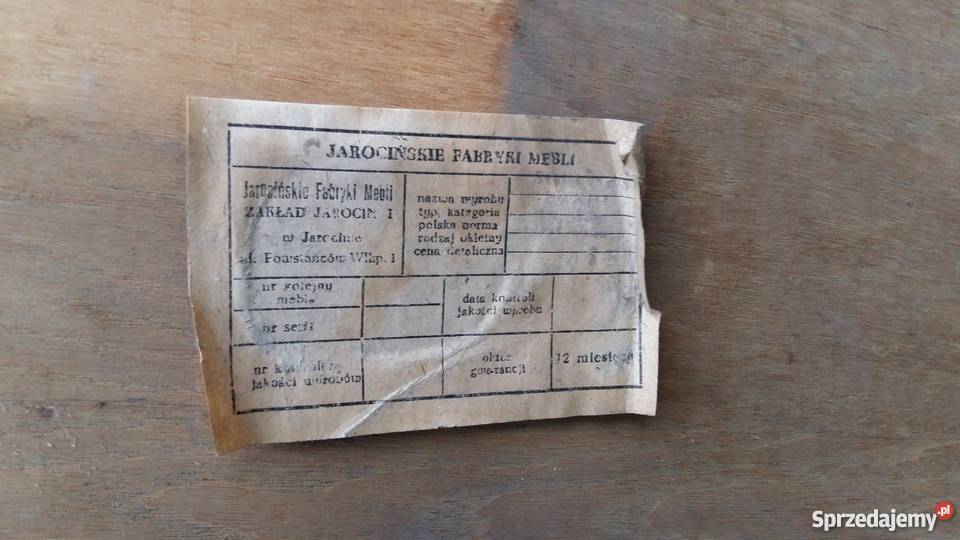 JAROCIŃSKIE FABRYKI MEBLI
Jarocińskie Fabryki Mebli
ZAKŁAD JAROCIN 1
w Jarocinie
ul. Powstańców Wlkp. 1
nazwa wyrobu
typ, kategoria
polska norma
rodzaj okleiny
cena detaliczna
nr kolejny
mebla
data kontroli
jakości wyrobu
nr serii
nr kontrolera
jakości wyrobów
okres
gwarancji
12 miesięcy
Sprzedajemy.pl